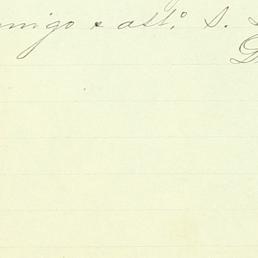 amigo e att.º S.